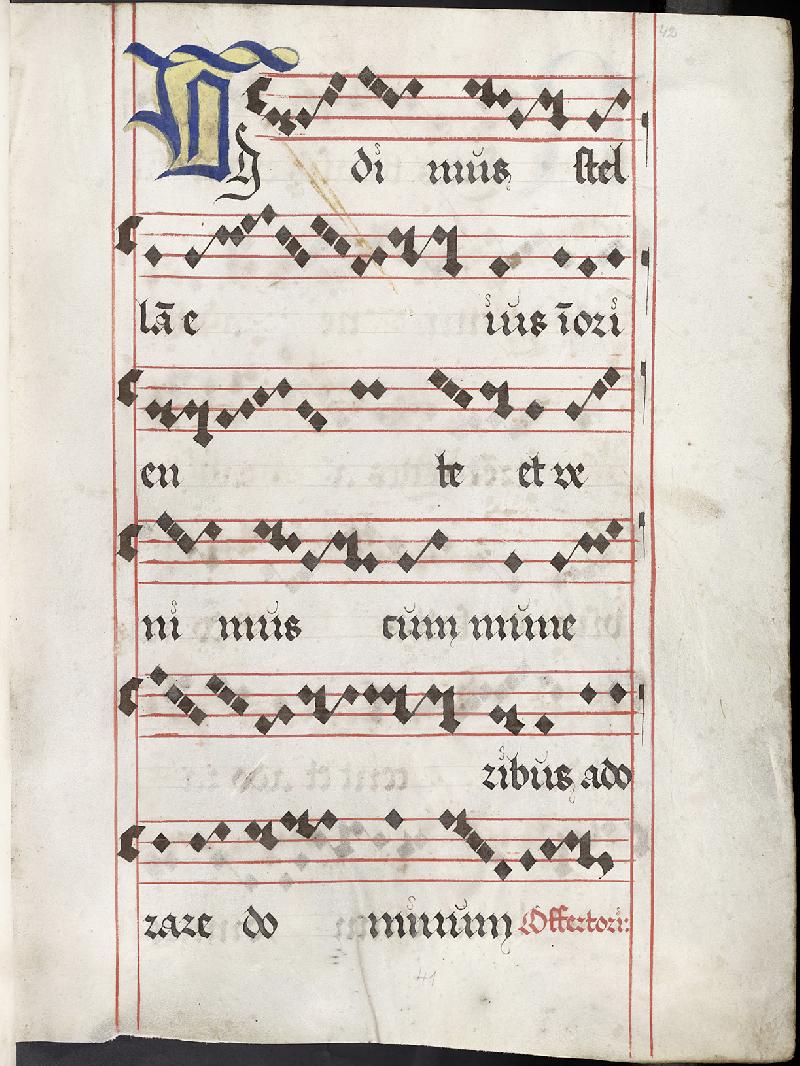 42
Vi di mus stel
lā e ius ī ori
en te et ve
ni mus cum mune
ribus ado
rare do minum Offertori:
41